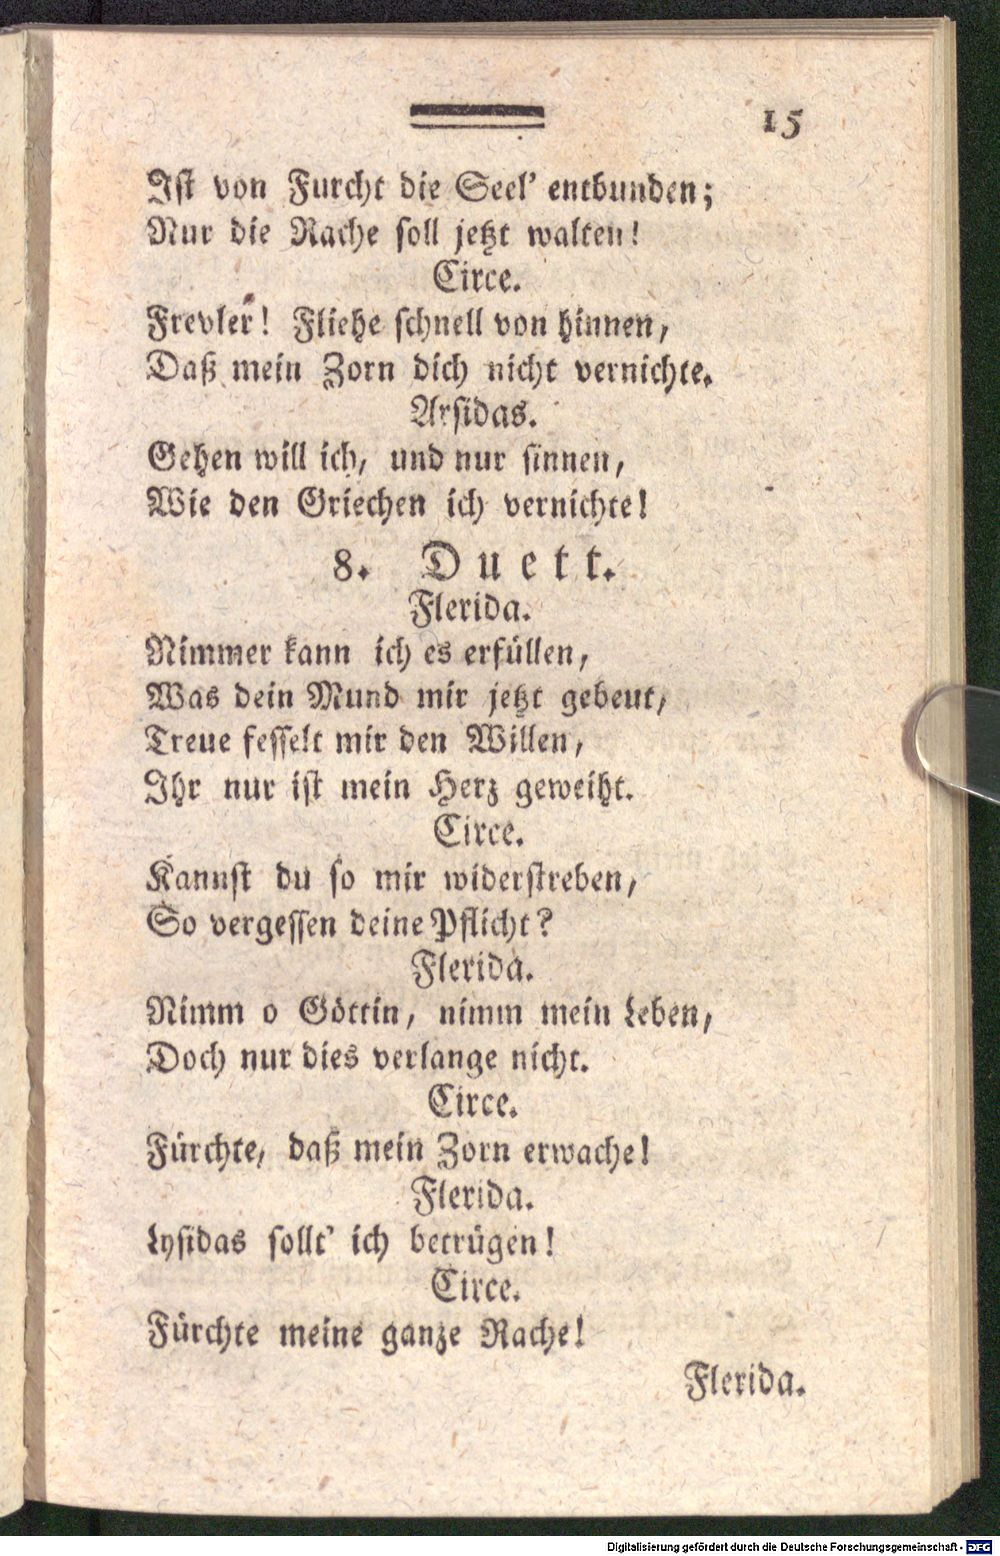 15
Ist von Furcht die Seel' entbunden;
Nur die Rache soll jetzt walten!
Circe.
Frevler! Fliehe schnell von hinnen,
Daß mein Zorn dich nicht vernichte.
Arsidas.
Gehen will ich, und nur sinnen,
Wie den Griechen ich vernichte!
8. Duett.
Flerida.
Nimmer kann ich es erfüllen,
Was dein Mund mir jetzt gebeut,
Treue fesselt mir den Willen,
Ihr nur ist mein Herz geweiht.
Circe.
Kannst du so mir widerstreben,
So vergessen deine Pflicht?
Flerida.
Nimm o Göttin, nimm mein Leben,
Doch nur dies verlange nicht.
Circe.
Fürchte, daß mein Zorn erwache!
Flerida.
Lysidas sollt' ich betrügen!
Circe.
Fürchte meine ganze Rache!
Flerida.
Digitalisierung gefördert durch die Deutsche Forschungsgemeinschaft - DFG